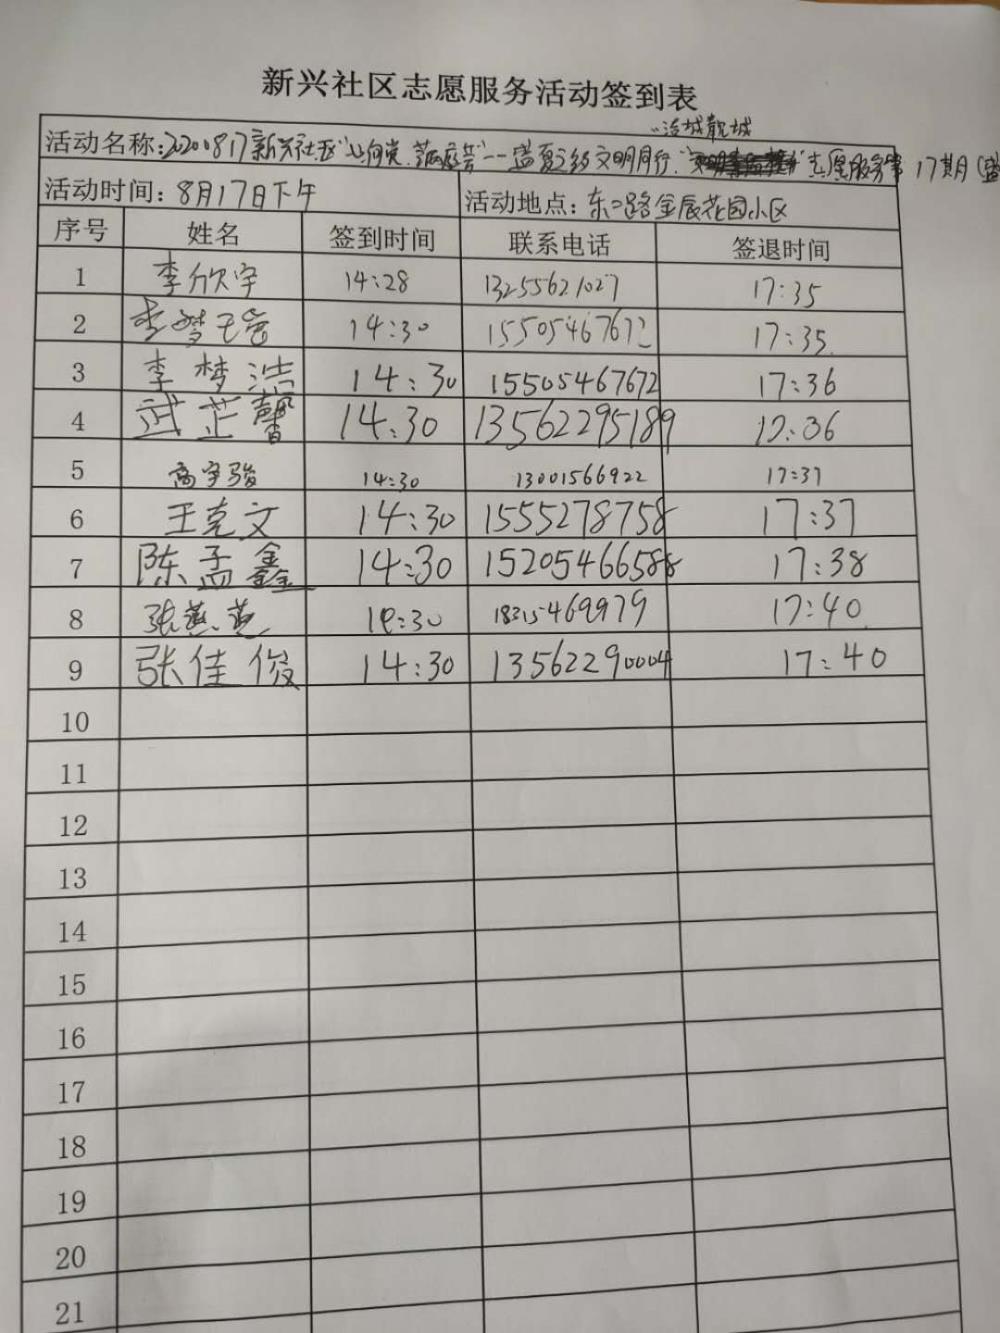 新兴社区志愿服务活动签到表
活动名称:20200817新兴社区"心向党
盛夏之约 文明同行 志愿服务 17期
活动时间:8月17日下午 活动地点:东二路金辰花园小区
序号 姓名 签到时间 联系电话 签退时间
1 李欣宇 14:28 13255621027 17:35
2 14:30 15505467672 17:35
3 李梦浩 14:30 15505467672 17:36
4 武芷馨 14:30 13562295189
5 高宇骏 14:30 13001566922 17:37
6 王克文 14:30 1555278758 17:37
7 陈孟鑫 14:30 15205466588 17:38
8 14:30 18315469979 17:40
9 张佳俊 14:30 13562290004 17:40
10
11
12
13
14
15
16
17
18
19
20
21